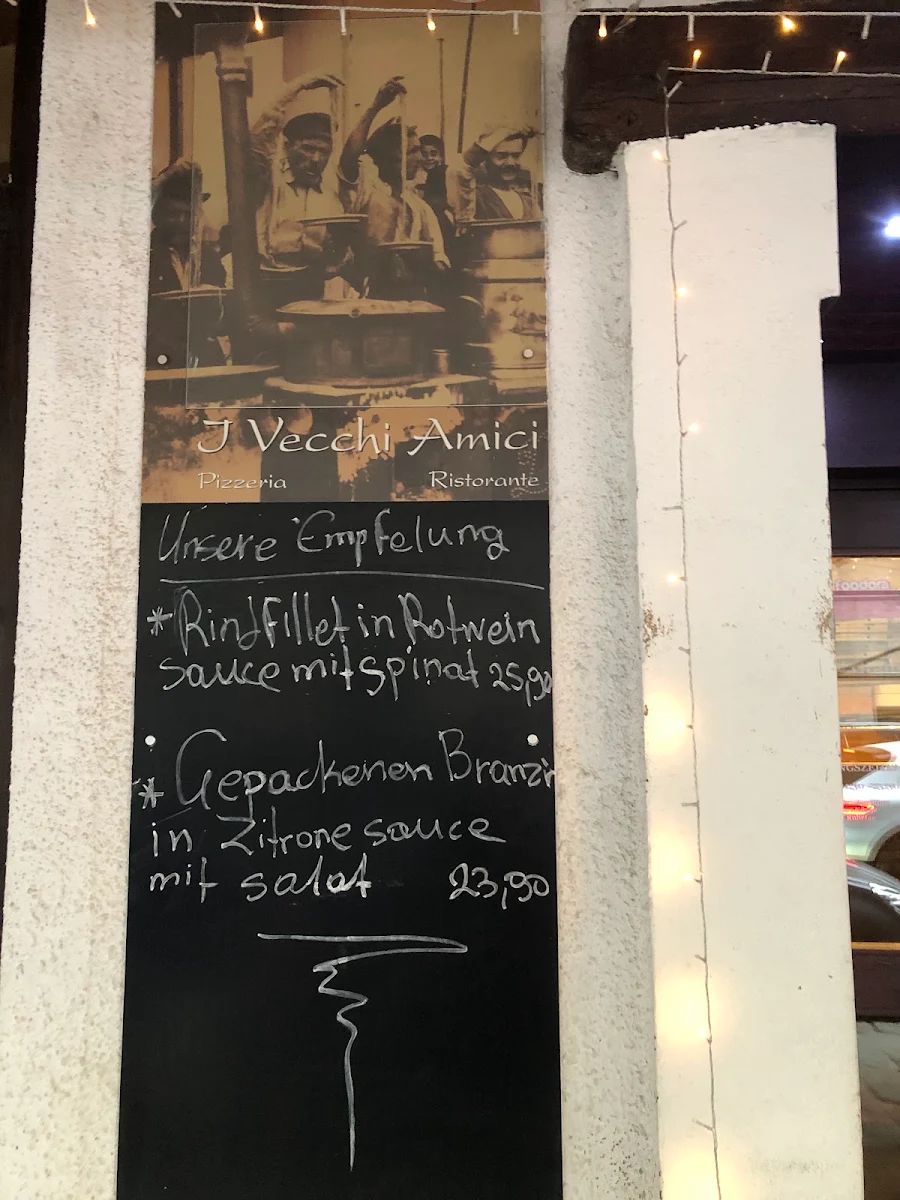 I Vecchi Amici
Pizzeria Ristorante
Unsere Empfelung
* Rindfillet in Rotwein
sauce mit spinat 25,90
* Gepackenen Branzin
in Zitrone sauce
mit salat 23,90
foodora